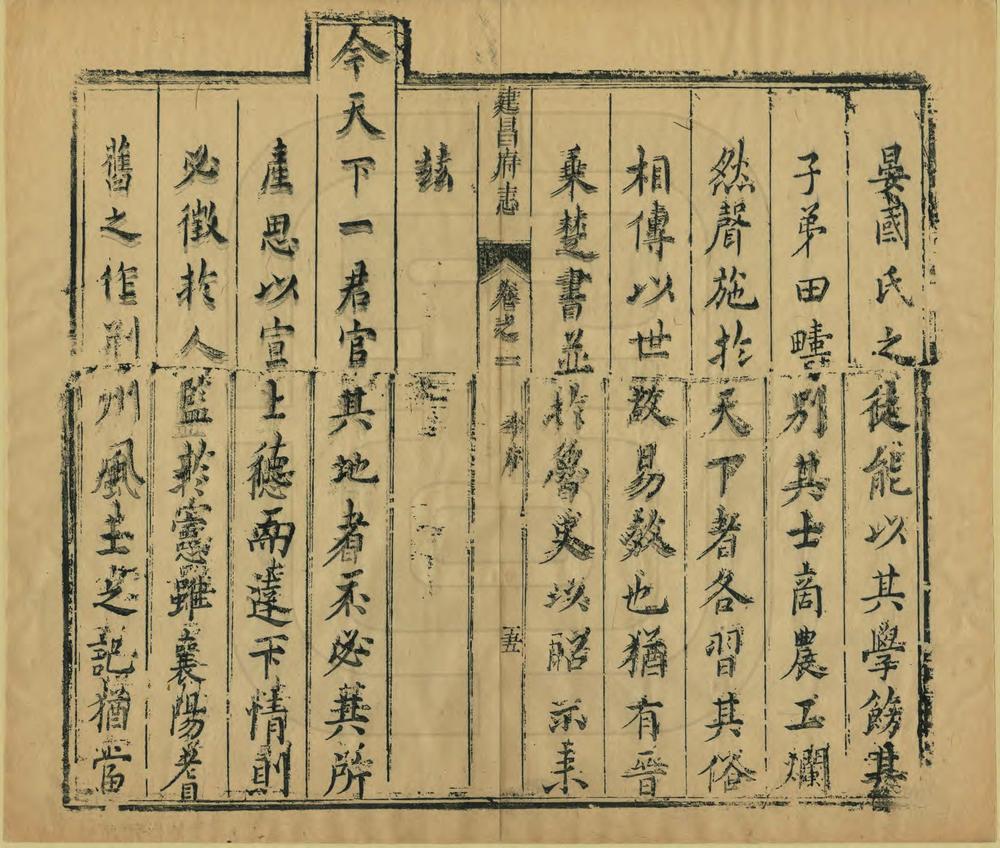 晏國氏之徒能以其學飭其
子弟田疇別其士商農工爛
然聲施於天下者各習其俗
相傳以世故易斆也猶有晉
乘楚書並於魯史以昭示耒
茲
建昌府志 卷之一 序 五
今天下一君官其地者不必其所
產思以宣上德而達下情則
必徵於人監於憲雖襄陽耆
舊之作荊州風土之記猶當